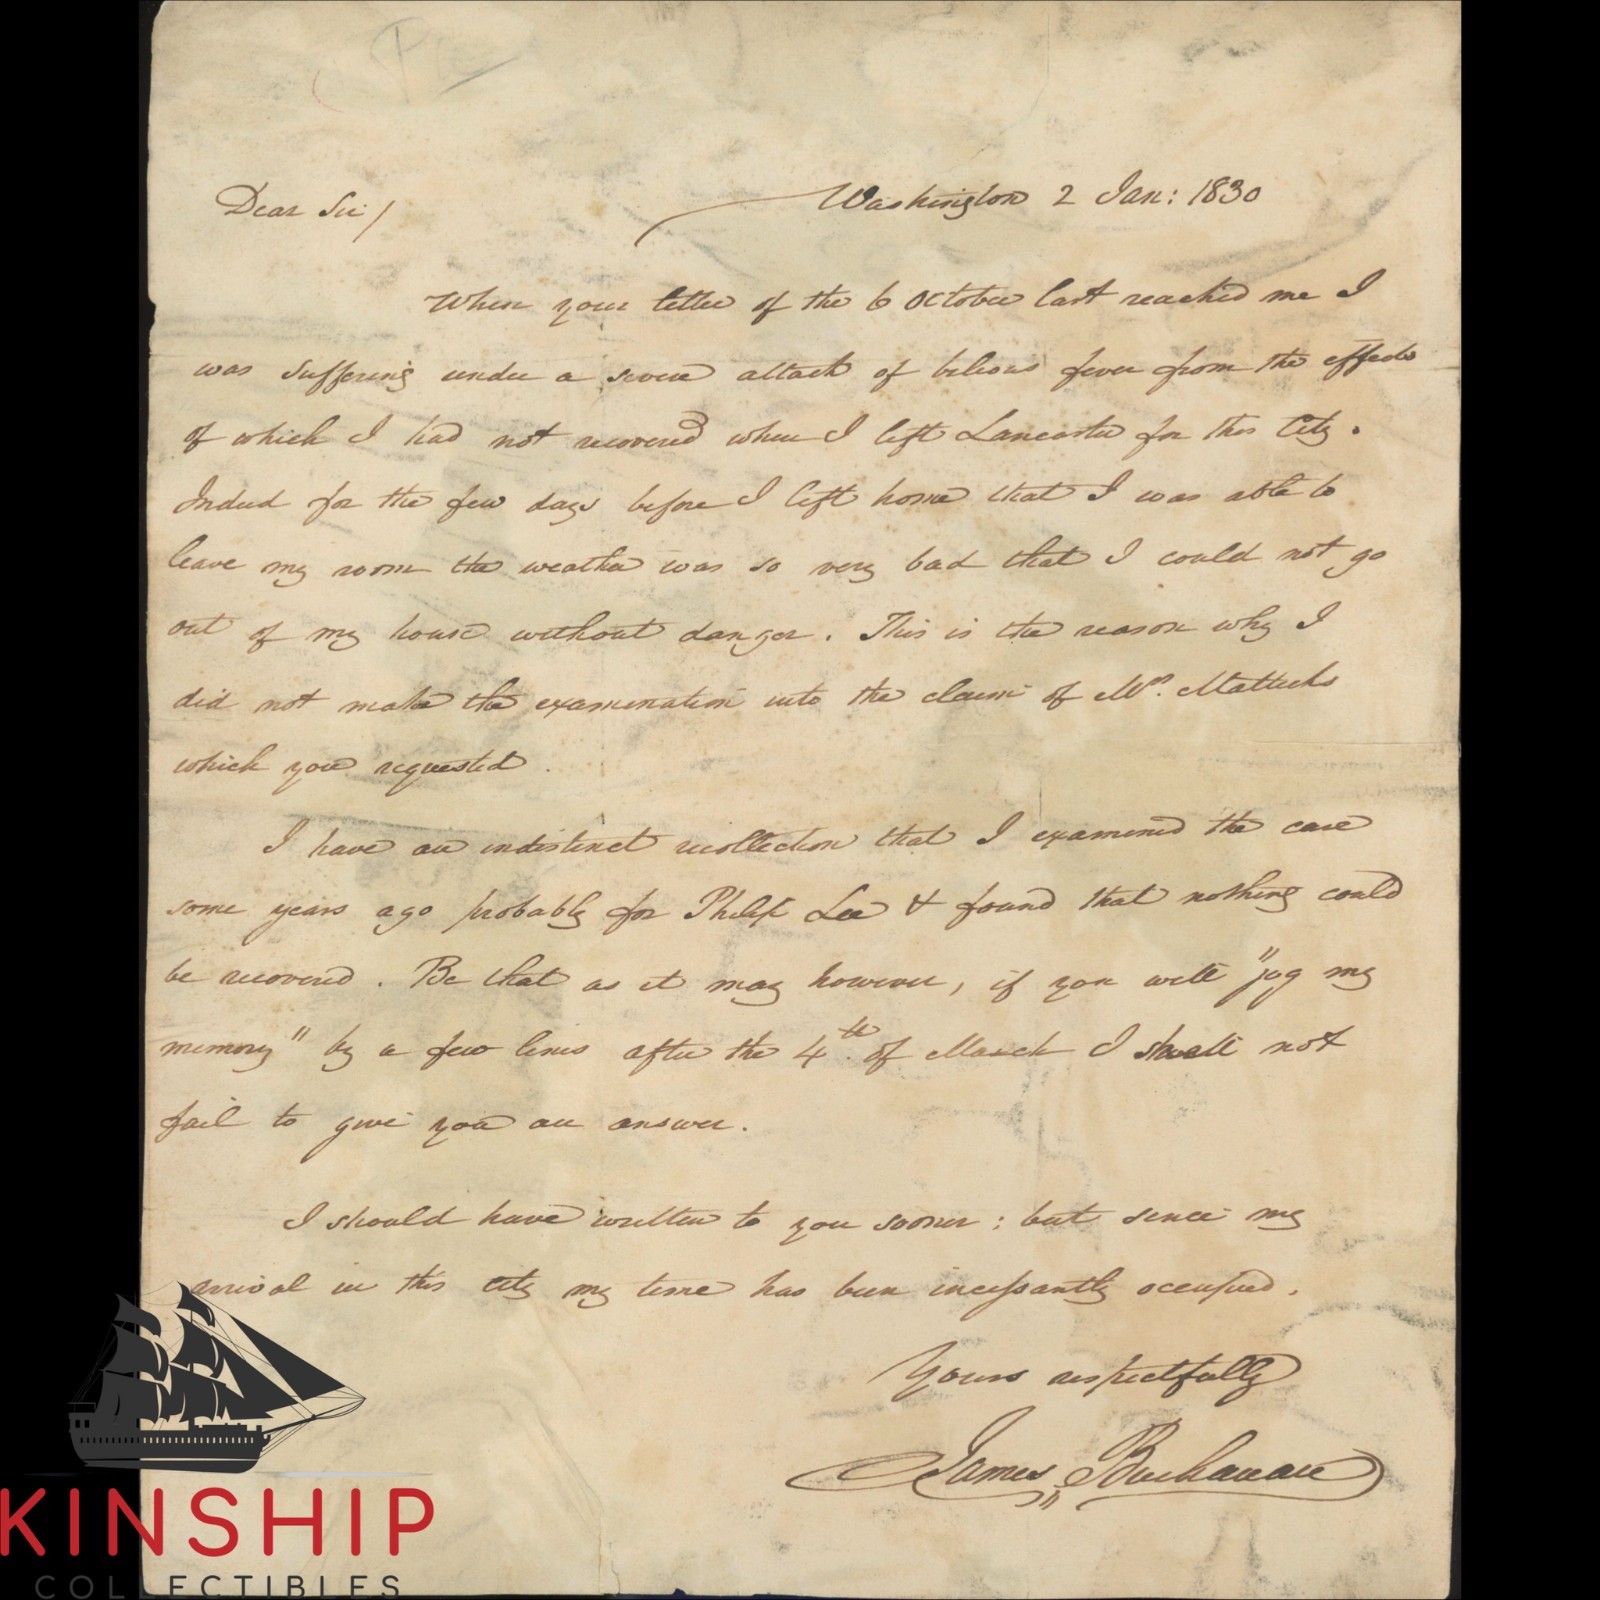 Dear Sir/ Washington 2 Jan: 1830
When your letter of the 6 October last reached me I
was suffering under a severe attack of bilious fever from the effects
of which I had not recovered when I left Lancaster for this City.
Indeed for the few days before I left home that I was able to
leave my room the weather was so very bad that I could not go
out of my house without danger. This is the reason why I
did not make the examination into the claim of
which you requested.
I have an indistinct recollection that I examined the case
some years ago probably for Philip Lee & found that nothing could
be recovered. Be that as it may however, if you will "jog my
memory" by a few lines after the 4th of March I shall not
fail to give you an answer.
I should have written to you sooner: but since my
arrival in this city my time has been incessantly occupied.
Yours respectfully
James Buchanan
KINSHIP
COLLECTIBLES